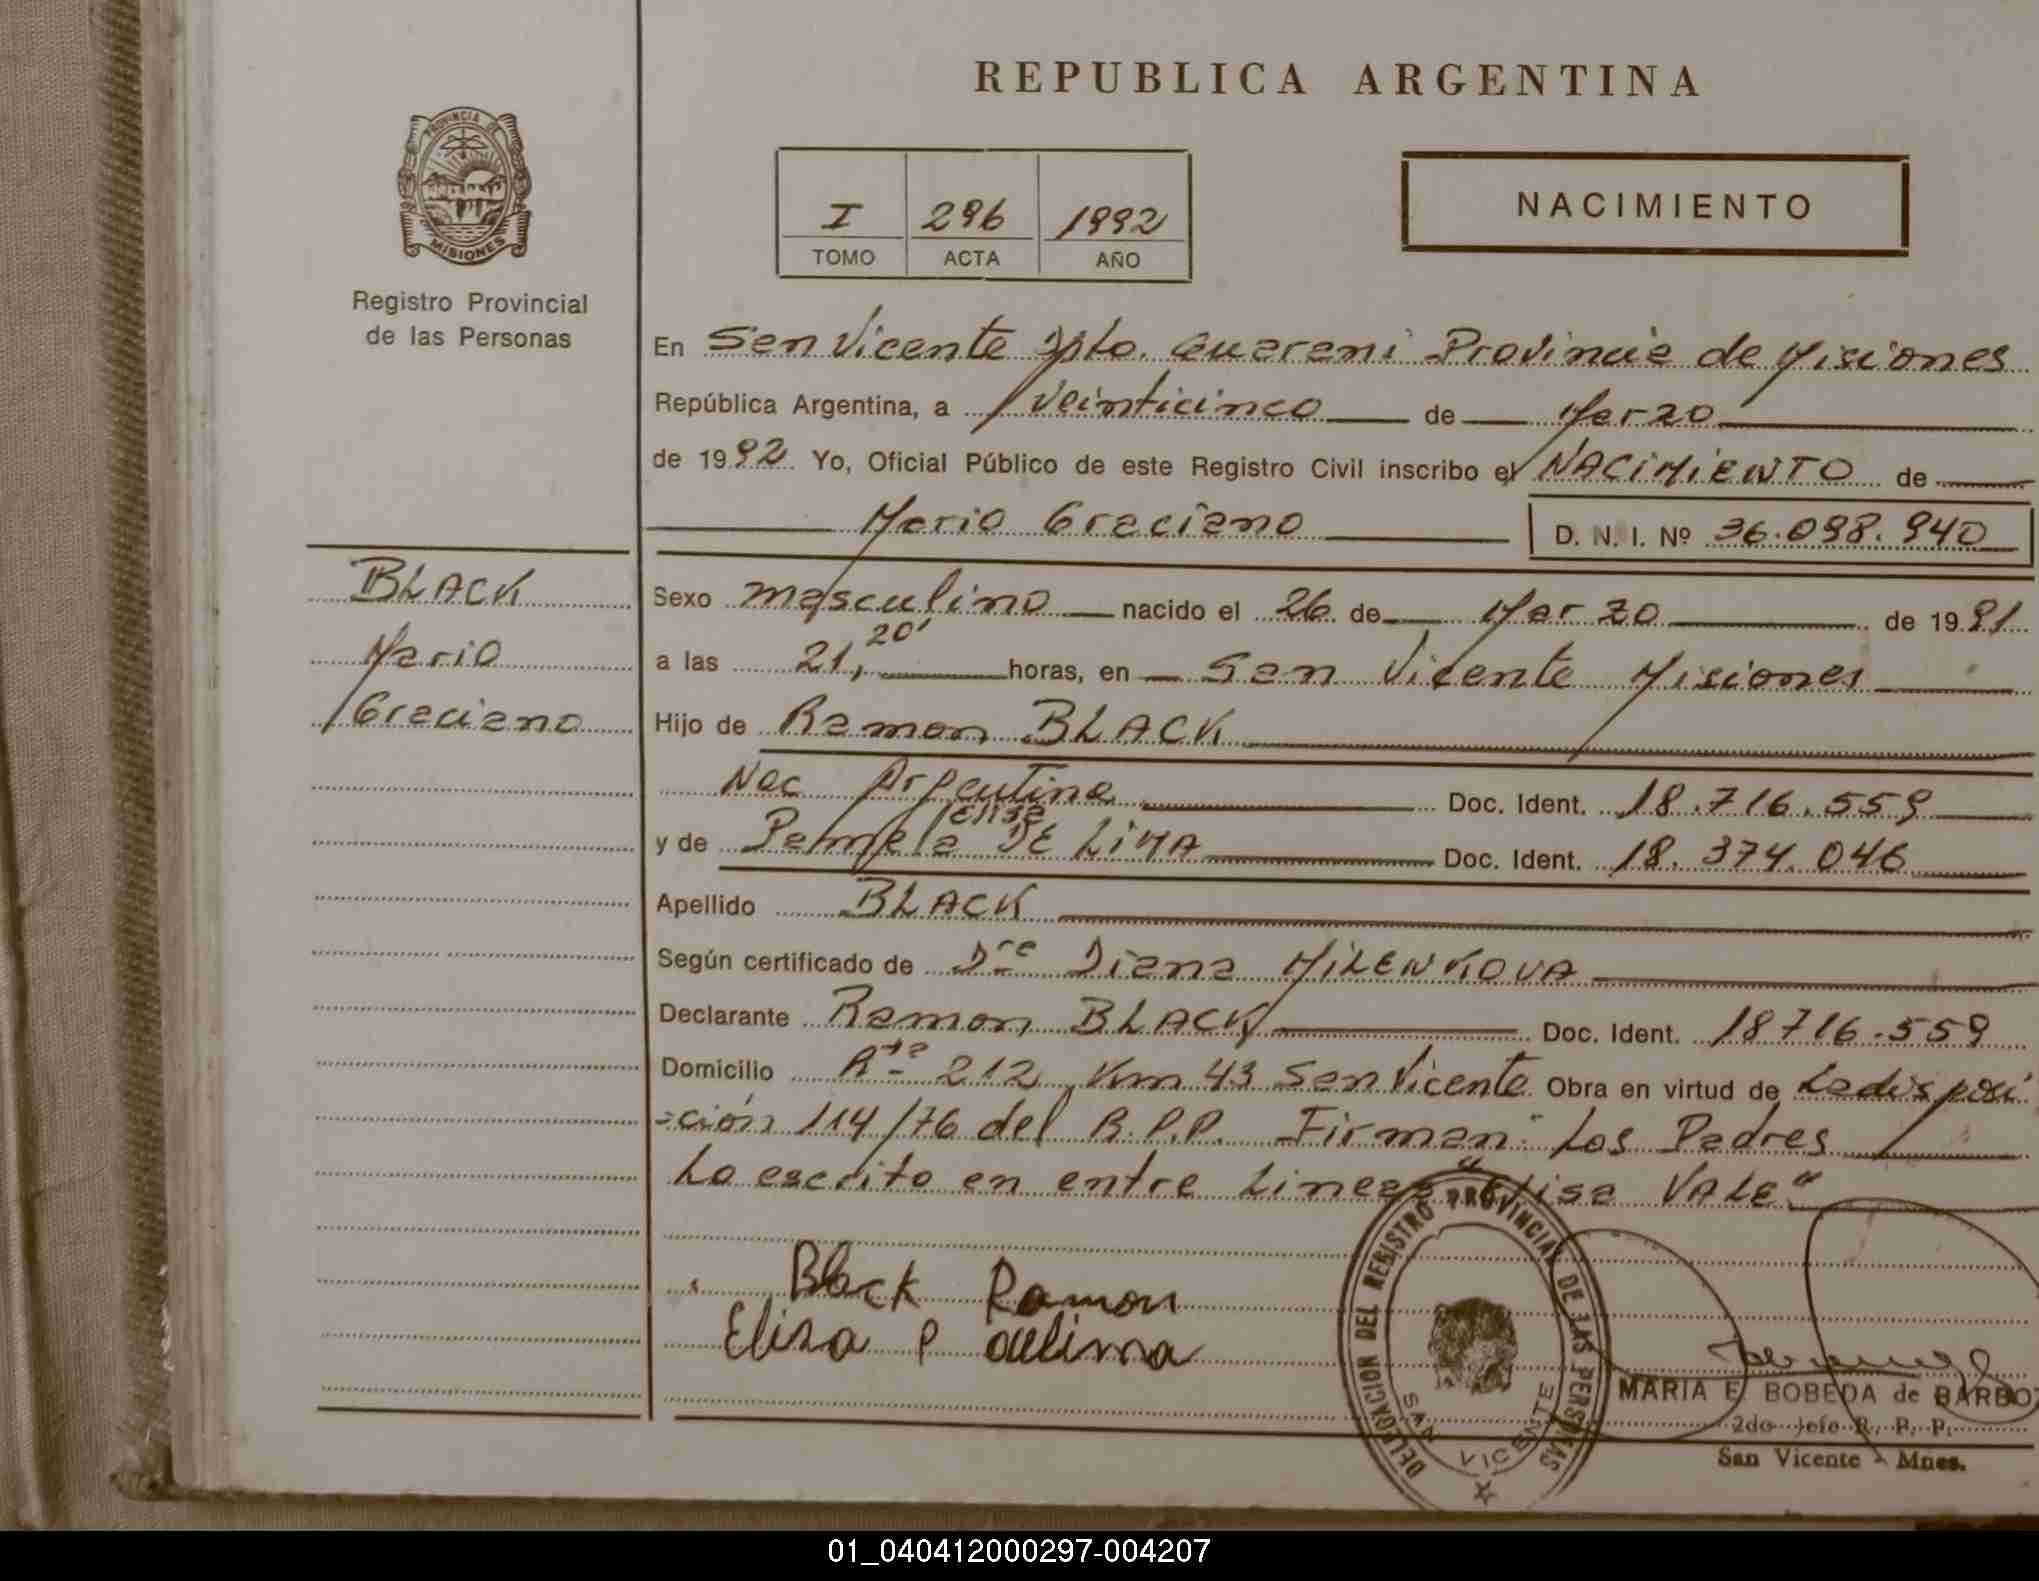 REPUBLICA ARGENTINA
PROVINCIA DE
MISIONES
Registro Provincial
de las Personas
I 296 1992
TOMO ACTA AÑO
NACIMIENTO
En San Vicente Dpto. Guarani Provincia de Misiones
República Argentina, a veinticinco de Marzo
de 1992 Yo, Oficial Público de este Registro Civil inscribo el NACIMIENTO de
Mario Graciano D. N. I. Nº 36.098.940
BLACK
Mario
Graciano
Sexo masculino nacido el 26 de Marzo de 1991
a las 21,20' horas, en San Vicente Misiones
Hijo de Ramon BLACK
Nac Argentina Doc. Ident. 18.716.559
Elisa
y de Pamela DE LIMA Doc. Ident. 18.374.046
Apellido BLACK
Según certificado de Dra Diana MILENKOVA
Declarante Ramon BLACK Doc. Ident. 18716.559
Domicilio Rta 212 Km 43 San Vicente Obra en virtud de La disposi
=ción 114/76 del R.P.P. Firman: Los Padres
Lo escrito en entre Lineas "Elisa VALE"
Black Ramon
Elisa P delima
DELEGACION DEL REGISTRO PROVINCIAL DE LAS PERSONAS
SAN VICENTE
MARIA E. BOBEDA de BARBO
2do Jefe R. P. P.
San Vicente - Mnes.
01_040412000297-004207